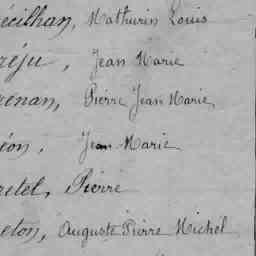 écilhan, Mathurin Louis
réju, Jean Marie
renan, Pierre Jean Marie
éon, Jean-Marie
retel, Pierre
reton, Auguste Pierre Michel